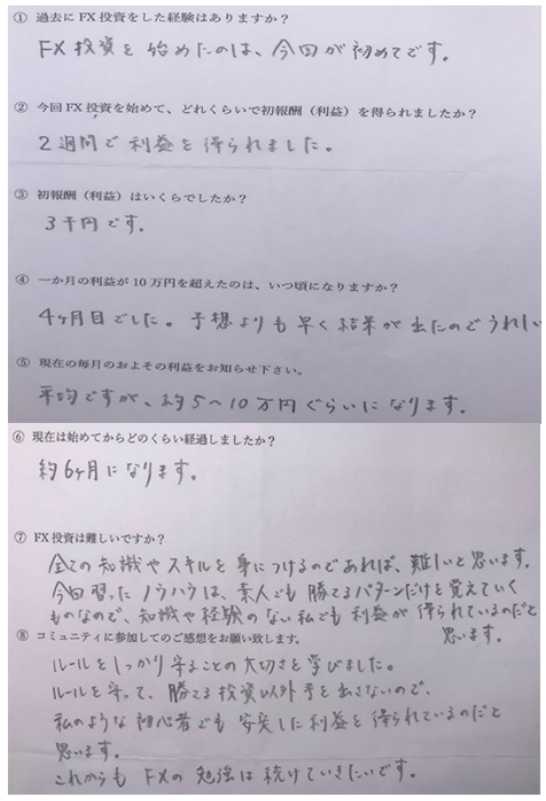 ① 過去にFX投資をした経験はありますか？
FX投資を始めたのは、今回が初めてです。
② 今回FX投資を始めて、どれくらいで初報酬（利益）を得られましたか？
2週間で利益を得られました。
③ 初報酬（利益）はいくらでしたか？
3千円です。
④ 一か月の利益が10万円を超えたのは、いつ頃になりますか？
4ヶ月目でした。予想よりも早く結果が出たのでうれしい
⑤ 現在の毎月のおよその利益をお知らせ下さい。
平均ですが、約5〜10万円ぐらいになります。
⑥ 現在は始めてからどのくらい経過しましたか？
約6ヶ月になります。
⑦ FX投資は難しいですか？
全ての知識やスキルを身につけるのであれば、難しいと思います。
今回習ったノウハウは、素人でも勝てるパターンだけを覚えていく
ものなので、知識や経験のない私でも利益が得られているのだと
思います。
⑧ コミュニティに参加してのご感想をお願い致します。
ルールをしっかり守ることの大切さを学びました。
ルールを守って、勝てる投資以外手を出さないので、
私のような初心者でも安定した利益を得られているのだと
思います。
これからもFXの勉強は続けていきたいです。